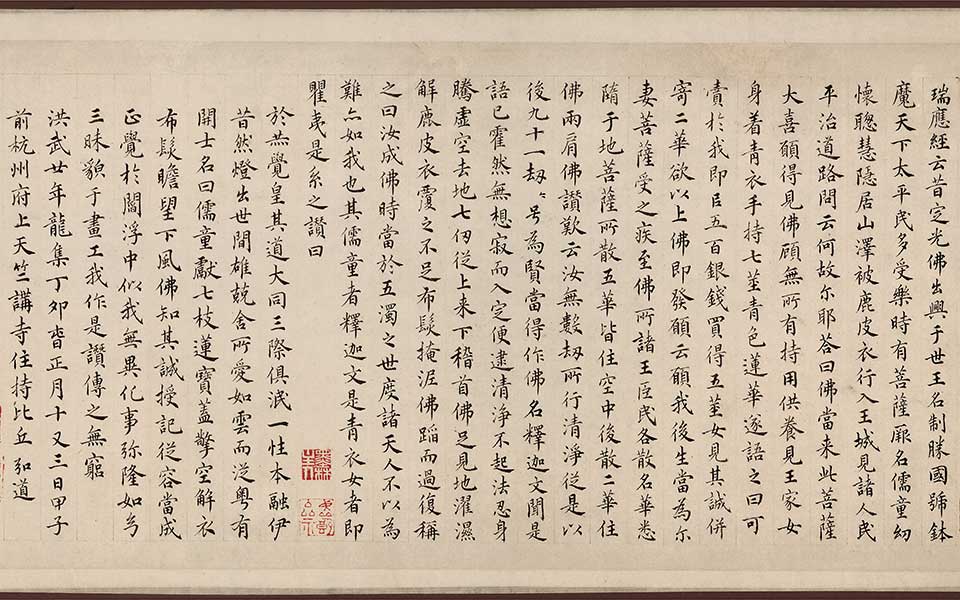 瑞應經云昔定光佛出興于世王名制勝國號鉢
魔天下太平民多受樂時有菩薩厥名儒童幼
懷聰慧隱居山澤被鹿皮衣行入王城見諸人民
平治道路問云何故尒耶荅曰佛當来此菩薩
大喜願得見佛顧無所有持用供養見王家女
身着青衣手持七莖青色蓮華遂語之曰可
賣於我即㠯五百銀錢買得五莖女見其誠併
寄二華欲以上佛即發願云願我後生當為尔
妻菩薩受之疾至佛所諸王臣民各散名華悉
隋于地菩薩所散五華皆住空中後散二華住
佛兩肩佛讚歎云汝無數劫所行清淨從是以
後九十一劫号為賢當得作佛名釋迦文聞是
語已霍然無想寂而入定便逮清淨不起法忍身
騰虛空去地七仞從上来下稽首佛足見地濯濕
解鹿皮衣覆之不足布髮掩泥佛蹈而過復稱
之曰汝成佛時當於五濁之世度諸天人不以為
難亦如我也其儒童者釋迦文是青衣女者即
瞿夷是系之讚曰
於赤覺皇其道大同三際俱泯一性本融伊
昔然燈出世間雄兢舍所愛如雲而從粵有
開士名曰儒童獻七枝蓮寶蓋擎空解衣
布髮瞻望下風佛知其誠授記從容當成
正覺於閻浮中似我無異化事弥隆如兮
三昧貌于畫工我作是讚傳之無窮
洪武廿年龍集丁夘皆正月十又三日甲子
前杭州府上天竺講寺住持比丘弘道